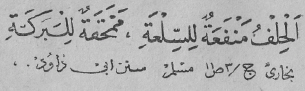 اَلْحِلْفُ مَنْفَعَةٌ لِلسِّلْعَةِ ، مَمْحَقَةٌ لِلْبَرَكَةِ
بخاری ج/۳ ص۱ مسلم سنن ابی داؤد .